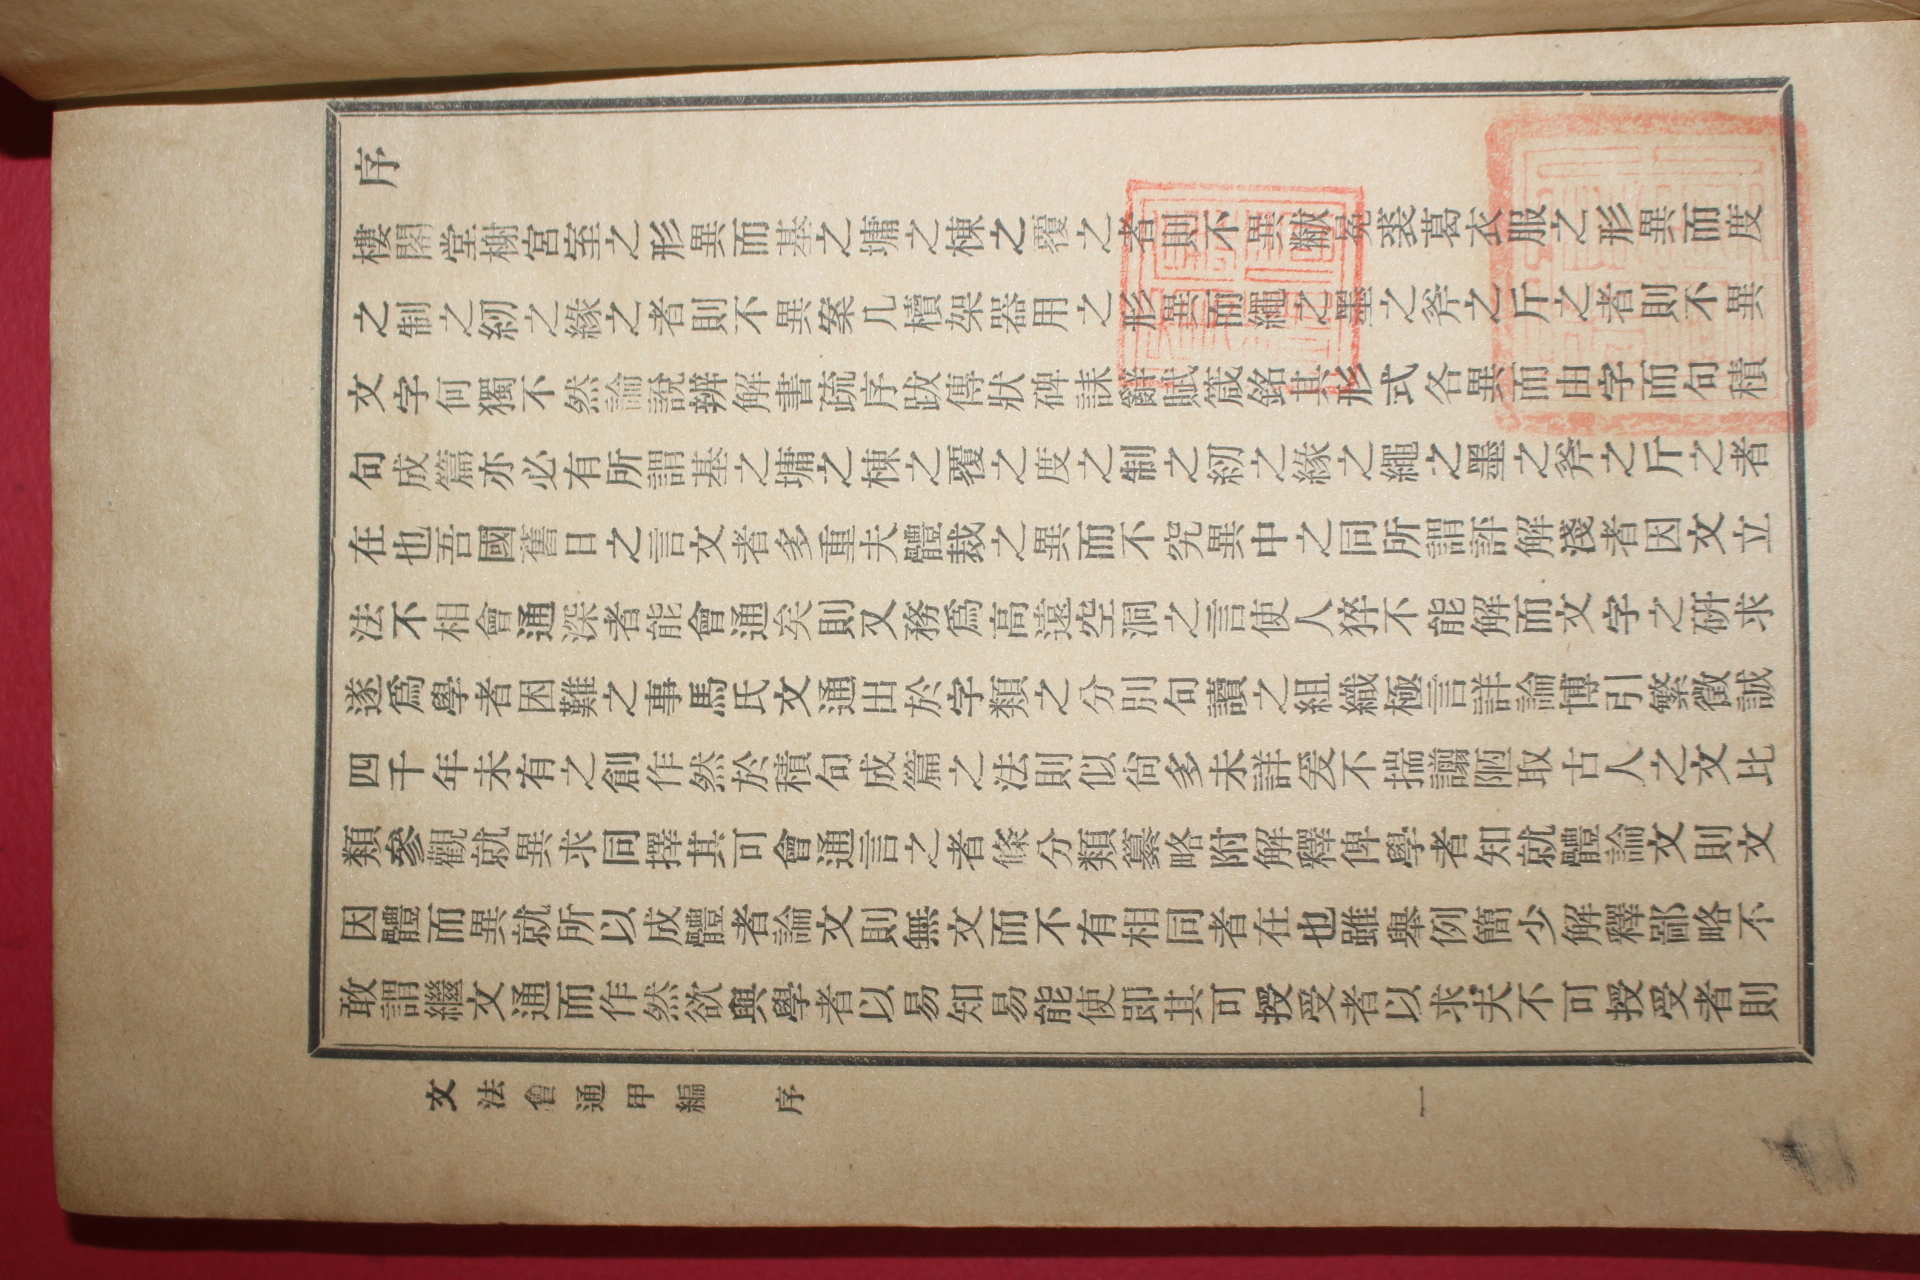 序
樓閣堂榭宮室之形異而基之墉之棟之覆之者則不異黻冕裘葛衣服之形異而度
之制之紉之緣之者則不異案几櫝架器用之形異而繩之墨之斧之斤之者則不異
文字何獨不然論說辨解書疏序跋傳狀碑誄辭賦箴銘其形式各異而由字而句積
句成篇亦必有所謂基之墉之棟之覆之度之制之紉之緣之繩之墨之斧之斤之者
在也吾國舊日之言文者多重夫體裁之異而不究異中之同所謂評解淺者因文立
法不相會通深者能會通矣則又務爲高遠空洞之言使人猝不能解而文字之研求
遂爲學者困難之事馬氏文通出於字類之分別句讀之組織極言詳論博引繁徵誠
四千年未有之創作然於積句成篇之法則似尙多未詳爰不揣譾陋取古人之文比
類參觀就異求同擇其可會通言之者條分類纂略附解釋俾學者知就體論文則文
因體而異就所以成體者論文則無文而不有相同者在也雖舉例簡少解釋鄙略不
敢謂繼文通而作然欲與學者以易知易能使卽其可授受者以求夫不可授受者則
文法會通甲編　序　一